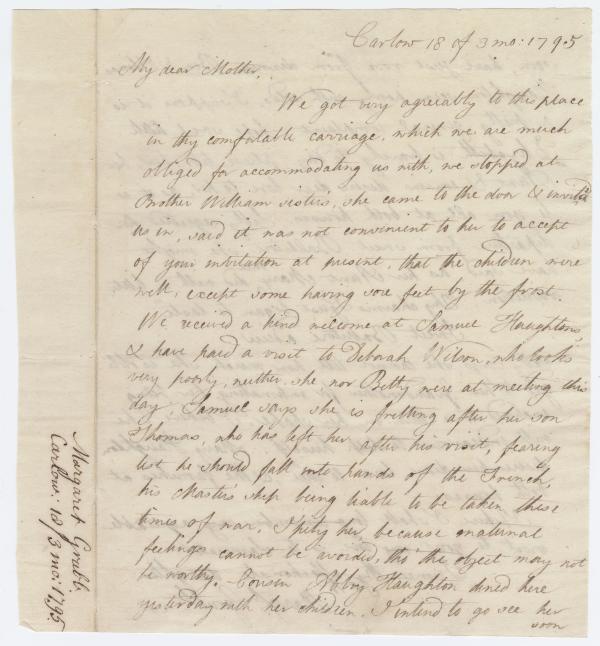 Carlow 18 of 3 mo: 1795
My dear Mother,
We got very agreeably to this place
in thy comfortable carriage, which we are much
obliged for accommodating us with, we stopped at
Brother William sisters, she came to the door & invited
us in, said it was not convenient to her to accept
of your invitation at present, that the children were
well, except some having sore feet by the frost.
We received a kind welcome at Samuel Haughtons,
& have paid a visit to Deborah Wilson, who looks
very poorly, neither she, nor Betty were at meeting this
day, Samuel says she is fretting after her son
Thomas, who has left her after his visit, fearing
lest he should fall into hands of the French,
his Master's ship being liable to be taken these
times of war, I pity her, because maternal
feelings cannot be avoided, tho' the object may not
be worthy. Cousin Haughton dined here
yesterday with her children. I intend to go see her
soon
Margaret Grubb.
Carlow: 18/3 mo: 1795